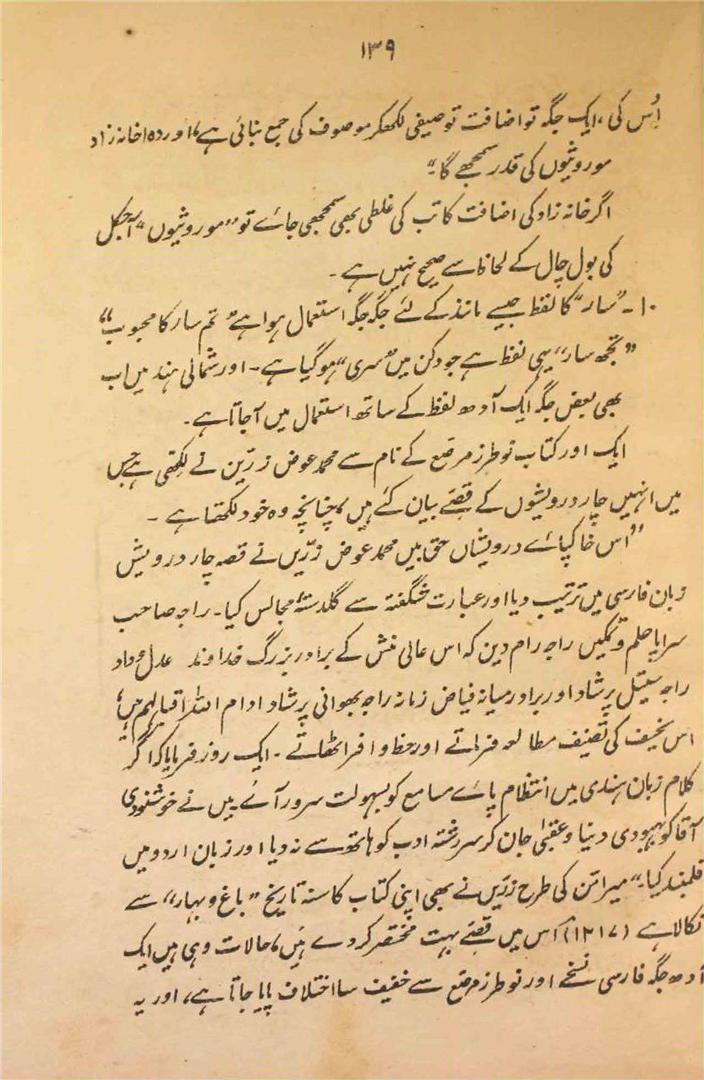 ۱۳۹
اُس کی ، ایک جگہ تو اضافت توصیفی لکھکر موصوف کی جمع بنائی ہے ، اور دہ اخانہ زاد
موروثیوں کی قدر سمجھے گا۔“
اگر خانہ زاد کی اضافت کاتب کی غلطی بھی سمجھی جائے تو ”موروثیوں“ آجکل
کی بول چال کے لحاظ سے صحیح نہیں ہے۔
۱۰۔ ”سار“ کا لفظ جیسے مانند کے لئے جگہ جگہ استعمال ہوا ہے ”تم سار کا محبوب“
”تجھ سار“ یہی لفظ ہے جو دکن میں ”سری“ ہو گیا ہے۔ اور شمالی ہند میں اب
بھی بعض جگہ ایک آدھ لفظ کے ساتھ استعمال میں آجاتا ہے۔
ایک اور کتاب نوطرز مرصع کے نام سے محمد عوض زرّیں نے لکھی ہے جس
میں انہیں چار درویشوں کے قصے بیان کئے ہیں ، چنانچہ وہ خود لکھتا ہے ۔
”اس خاکپائے درویشاں حق بیں محمد عوض زرّیں نے قصہ چار درویش
زبان فارسی میں ترتیب دیا اور عبارت شگفتہ سے گلدستۂ مجالس کیا۔ راجہ صاحب
سراپا حلم و تمکیں راجہ رام دین کہ اس عالی منش کے برادر بزرگ خداوند عدل و داد
راجہ سیتل پرشاد اور برادر میانہ فیاض زمانہ راجہ بھوانی پرشاد ادام اللہ اقبالہم ہیں ،
اس نحیف کی تصنیف مطالعہ فرماتے اور حظ وافر اٹھاتے ۔ ایک روز فرمایا کہ اگر
کلام زبان ہندی میں انتظام پائے سامع کو بسہولت سرور آئے میں نے خوشنودی
آقا کو بہبودی دنیا و عقبیٰ جان کر سررشتہ ادب کو ہاتھ سے نہ دیا اور زبان اردو میں
قلمبند کیا۔“ میر امن کی طرح زرّیں نے بھی اپنی کتاب کا سنہ تاریخ ”باغ و بہار“ سے
نکالا ہے (۱۲۱۷) اس میں قصے بہت مختصر کر دے ہیں ، حالات وہی ہیں ایک
آدھ جگہ فارسی نسخے اور نوطرز مرصع سے خفیف سا اختلاف پایا جاتا ہے ، اور یہ